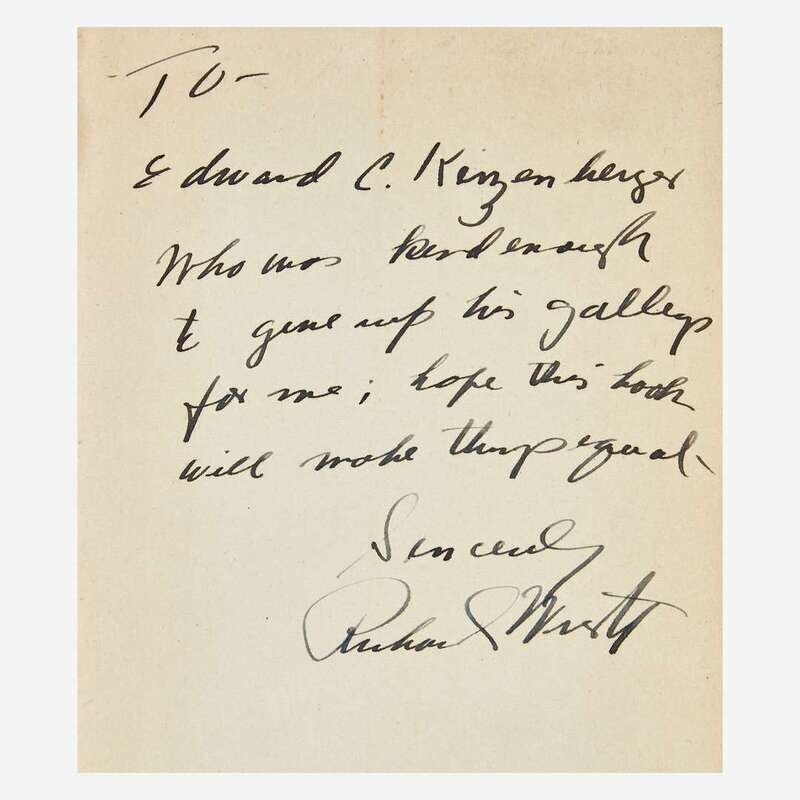 To-
Edward C. Kinzenberger
Who was kind enough
to give up his galleys
for me; hope this book
will make things equal-
Sincerely
Richard Wright